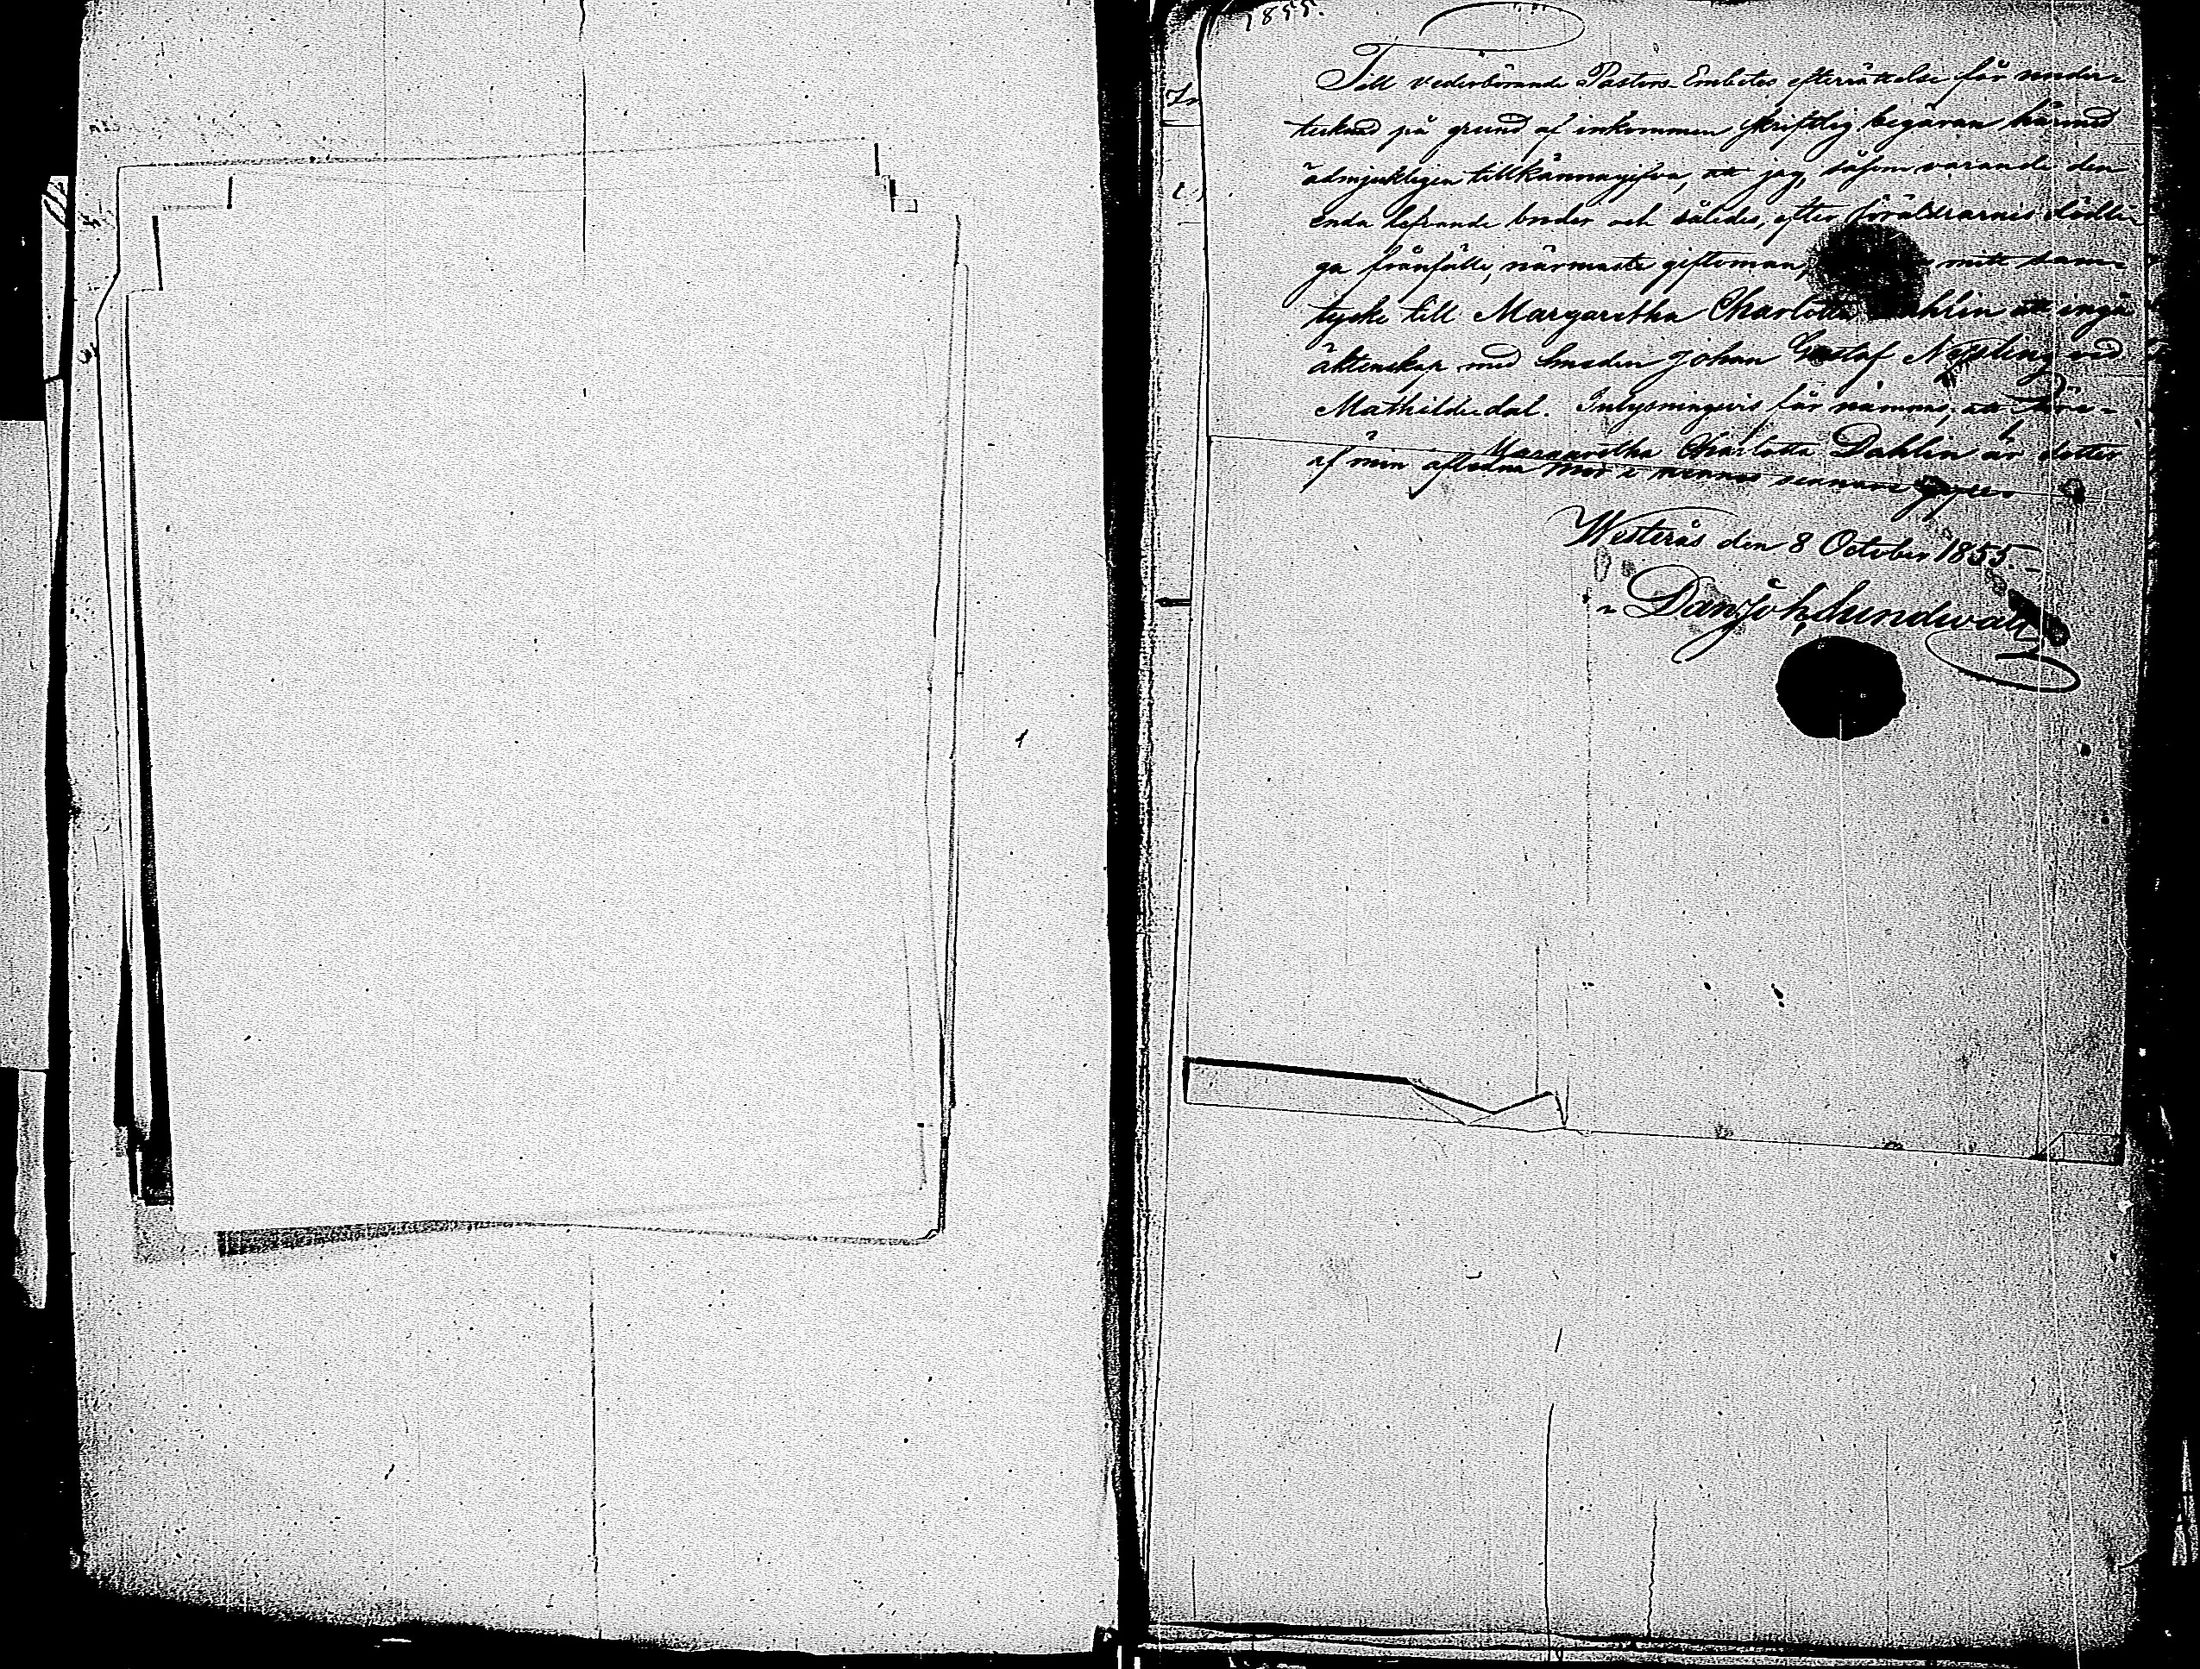 1855.
Till vederbörande Pastors-Embetes efterrättelse får under=
tecknad på grund af inkommen skriftlig begäran härmed
ödmjukligen tillkännagifva, att jag, såsom varande den
enda lefvande broder och således, efter föräldrarnes dödli=
ga frånfälle, närmaste giftoman, mitt sam=
tycke till Margaretha Charlotta att ingå
äktenskap med Smeden Johan Gustaf vid
Mathildedal. Tillika får nämnas, att
Margaretha Charlotta Dahlin är dotter
af min aflidna Mor i hennes senare gifte.
Westerås den 8 October 1855.
Dan. Joh. Sundwall